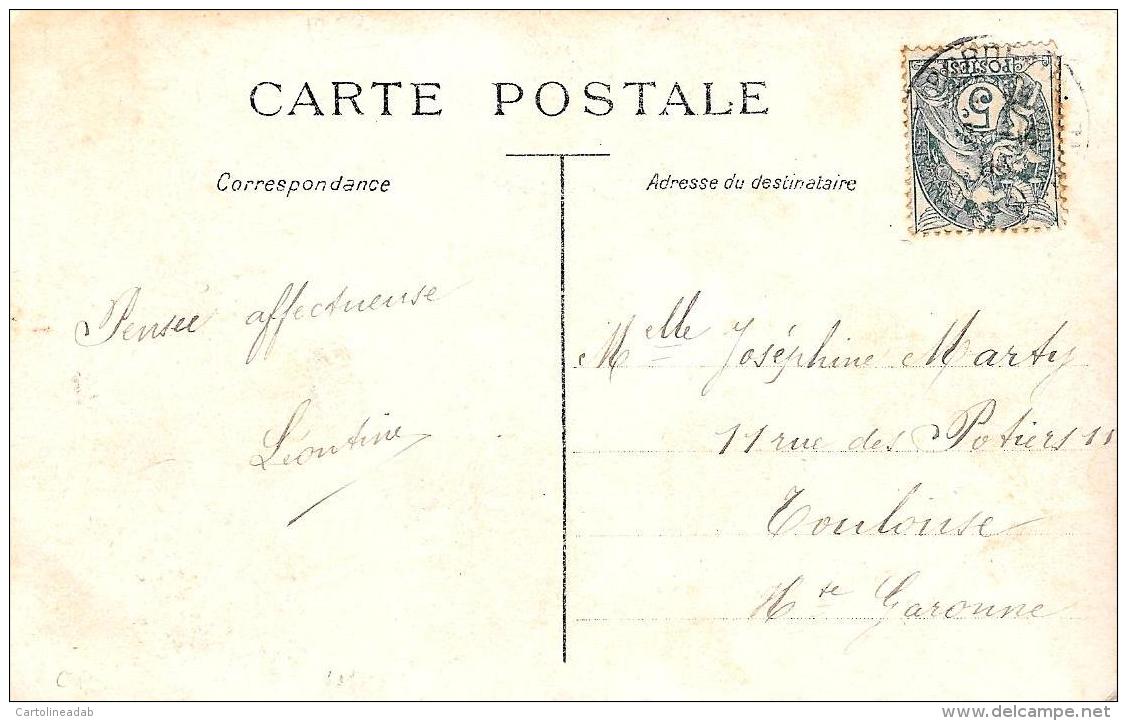 CARTE POSTALE
Correspondance
Adresse du destinataire
POSTES
5
Pensée affectueuse
Léontine
Melle Joséphine Marty
11 rue des Potiers 11
Toulouse
Hte Garonne
Cartolineadab
www.delcampe.net